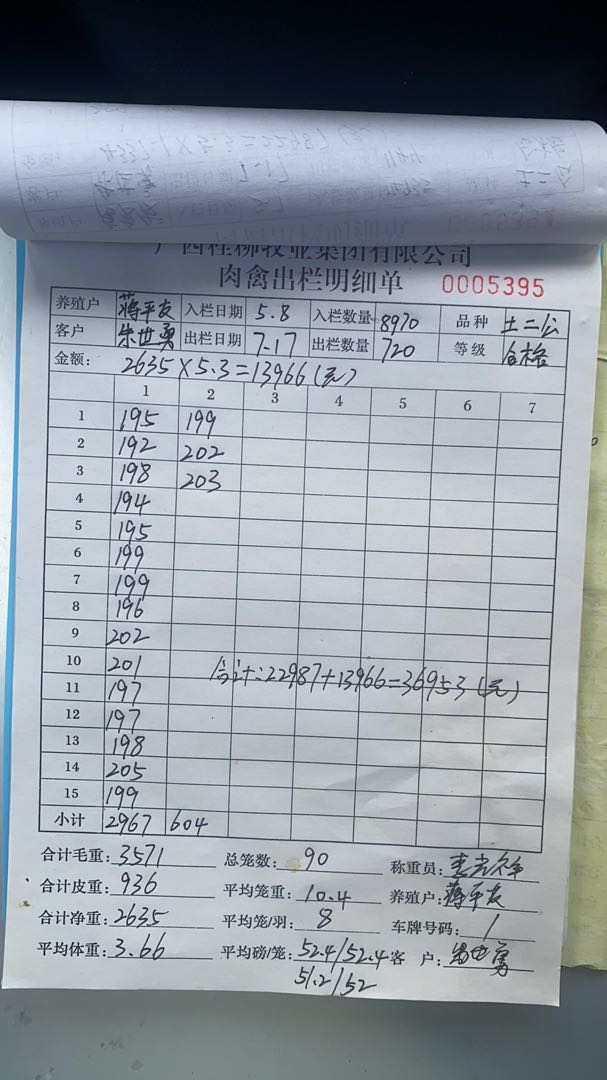 广西桂柳牧业集团有限公司
肉禽出栏明细单 0005395
养殖户 蒋平友 入栏日期 5.8 入栏数量 8970 品种 土二公
客户 朱世勇 出栏日期 7.17 出栏数量 720 等级 合格
金额: 2635×5.3=13966(元)
1 2 3 4 5 6 7
1 195 199
2 192 202
3 198 203
4 194
5 195
6 199
7 199
8 196
9 202
10 201
合计:22987+13966=36953(元)
11 197
12 197
13 198
14 205
15 199
小计 2967 604
合计毛重: 3571 总笼数: 90 称重员:
合计皮重: 936 平均笼重: 10.4 养殖户: 蒋平友
合计净重: 2635 平均笼/羽: 8 车牌号码: 1
平均体重: 3.66 平均磅/笼: 52.4/52.4 客 户:
51.2/52